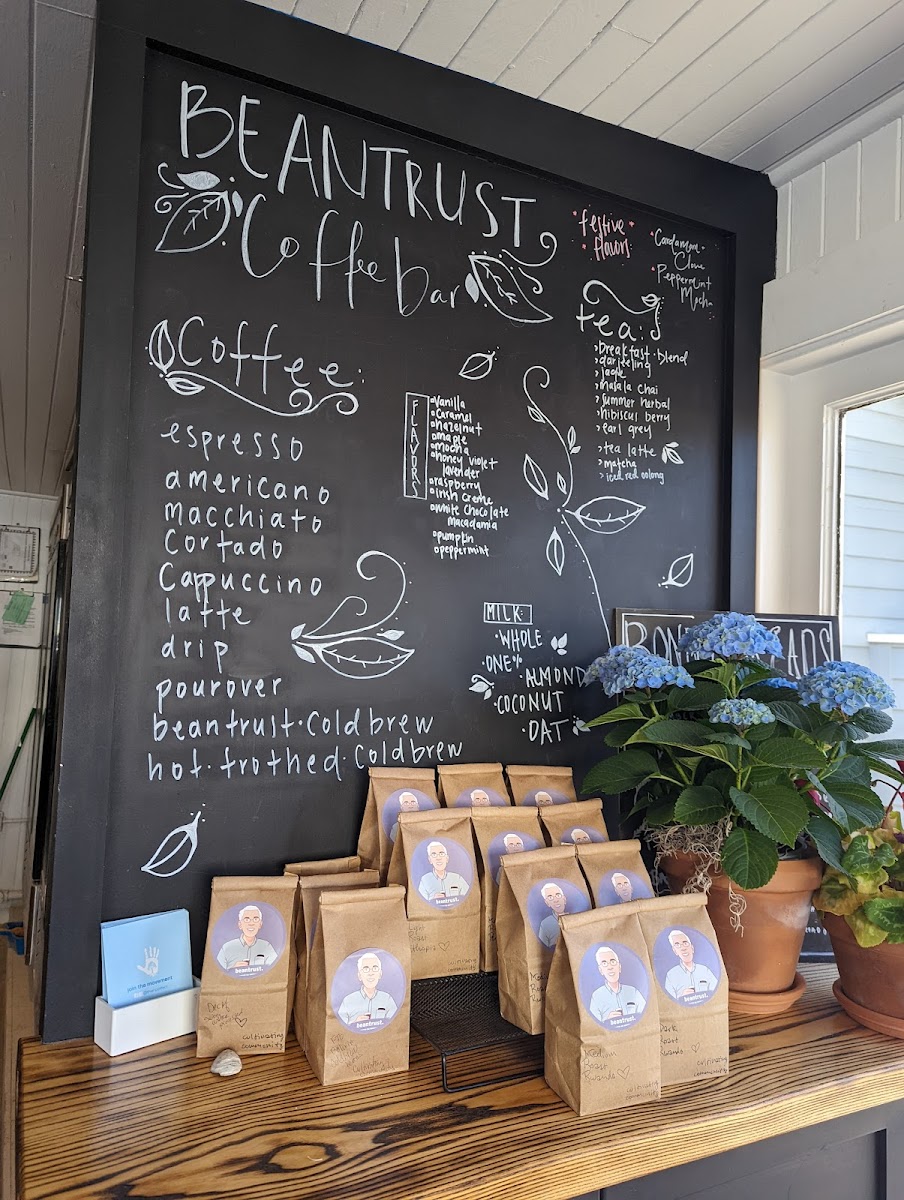 BEANTRUST
Coffee bar
festive
flavors
Cardamom
Clove
Peppermint
Mocha
Coffee:
espresso
americano
macchiato
cortado
cappuccino
latte
drip
pourover
beantrust·coldbrew
hot·frothed·coldbrew
FLAVORS
vanilla
caramel
hazelnut
maple
mocha
honey violet
lavender
raspberry
irish creme
white chocolate
macadamia
pumpkin
peppermint
tea:
breakfast·blend
darjeeling
jade
masala chai
summer herbal
hibiscus berry
earl grey
tea latte
matcha
iced red oolong
MILK:
·WHOLE
·ONE%
·ALMOND
·COCONUT
·OAT
beantrust.
beantrust.
beantrust.
beantrust.
beantrust.
join the movement.
Decaf
cultivating
community
Medium
Roast
Rwanda
cultivating
community
Dark
Roast
Rwanda
cultivating
community